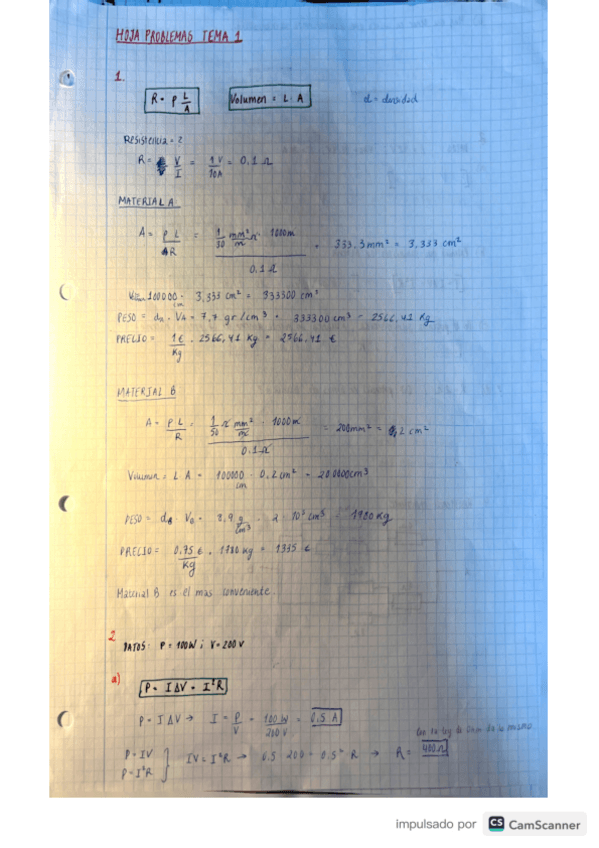 HOJA PROBLEMAS TEMA 1
1.
R = ρ L/A Volumen = L · A d = densidad
Resistencia = ?
R = V/I = 1V/10A = 0.1 Ω
MATERIAL A
A = ρL/R = 1/30 mm²Ω/m · 1000m / 0.1 Ω = 333.3 mm² = 3,333 cm²
100000 cm · 3,333 cm² = 333300 cm³
PESO = dA · VA = 7,7 gr/cm³ · 333300 cm³ = 2566,41 Kg
PRECIO = 1€/Kg · 2566,41 Kg = 2566,41 €
MATERIAL B
A = ρL/R = 1/50 Ω mm²/m · 1000m / 0.1 Ω = 200mm² = 2 cm²
Volumen = L A = 100000 cm · 0.2cm² = 200000cm³
PESO = dB · VB = 8,9 g/cm³ · 2 · 10⁵ cm³ = 1780 Kg
PRECIO = 0.75 €/Kg · 1780 Kg = 1335 €
Material B es el mas conveniente
2
DATOS: P = 100W ; V = 200 V
a)
P = I ΔV = I²R
P = I ΔV → I = P/V = 100 W/200 V = 0.5 A
Con la ley de Ohm da lo mismo
P = IV
P = I²R } IV = I²R → 0.5 · 200 = 0.5² · R → R = 400 Ω
impulsado por CS CamScanner